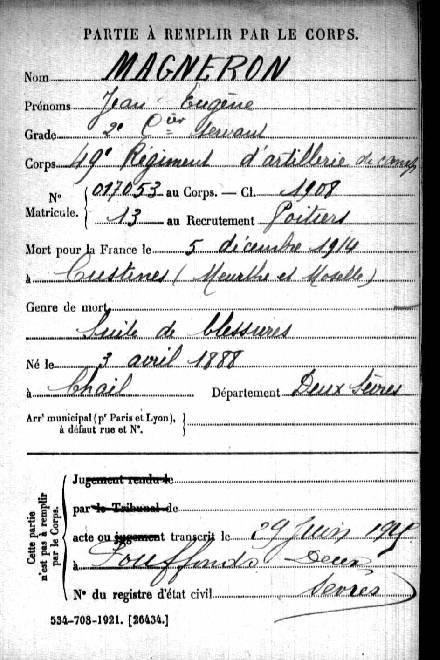 PARTIE À REMPLIR PAR LE CORPS.
Nom MAGNERON
Prénoms Jean Eugène
Grade 2e Cer Servant
Corps 49e Régiment d'artillerie de camp
N° Matricule. { 017053 au Corps. — Cl. 1908
13 au Recrutement Poitiers
Mort pour la France le 5 décembre 1914
à Custines (Meurthe et Moselle)
Genre de mort
Suite de blessures
Né le 3 avril 1888
à Chail Département Deux Sèvres
Arrt municipal (pr Paris et Lyon), }
à défaut rue et N°.
Cette partie n'est pas à remplir par le Corps.
Jugement rendu le
par le Tribunal de
acte ou jugement transcrit le 29 Juin 1915
à Souffonds Deux
N° du registre d'état civil Sèvres
534-708-1921. [26434.]